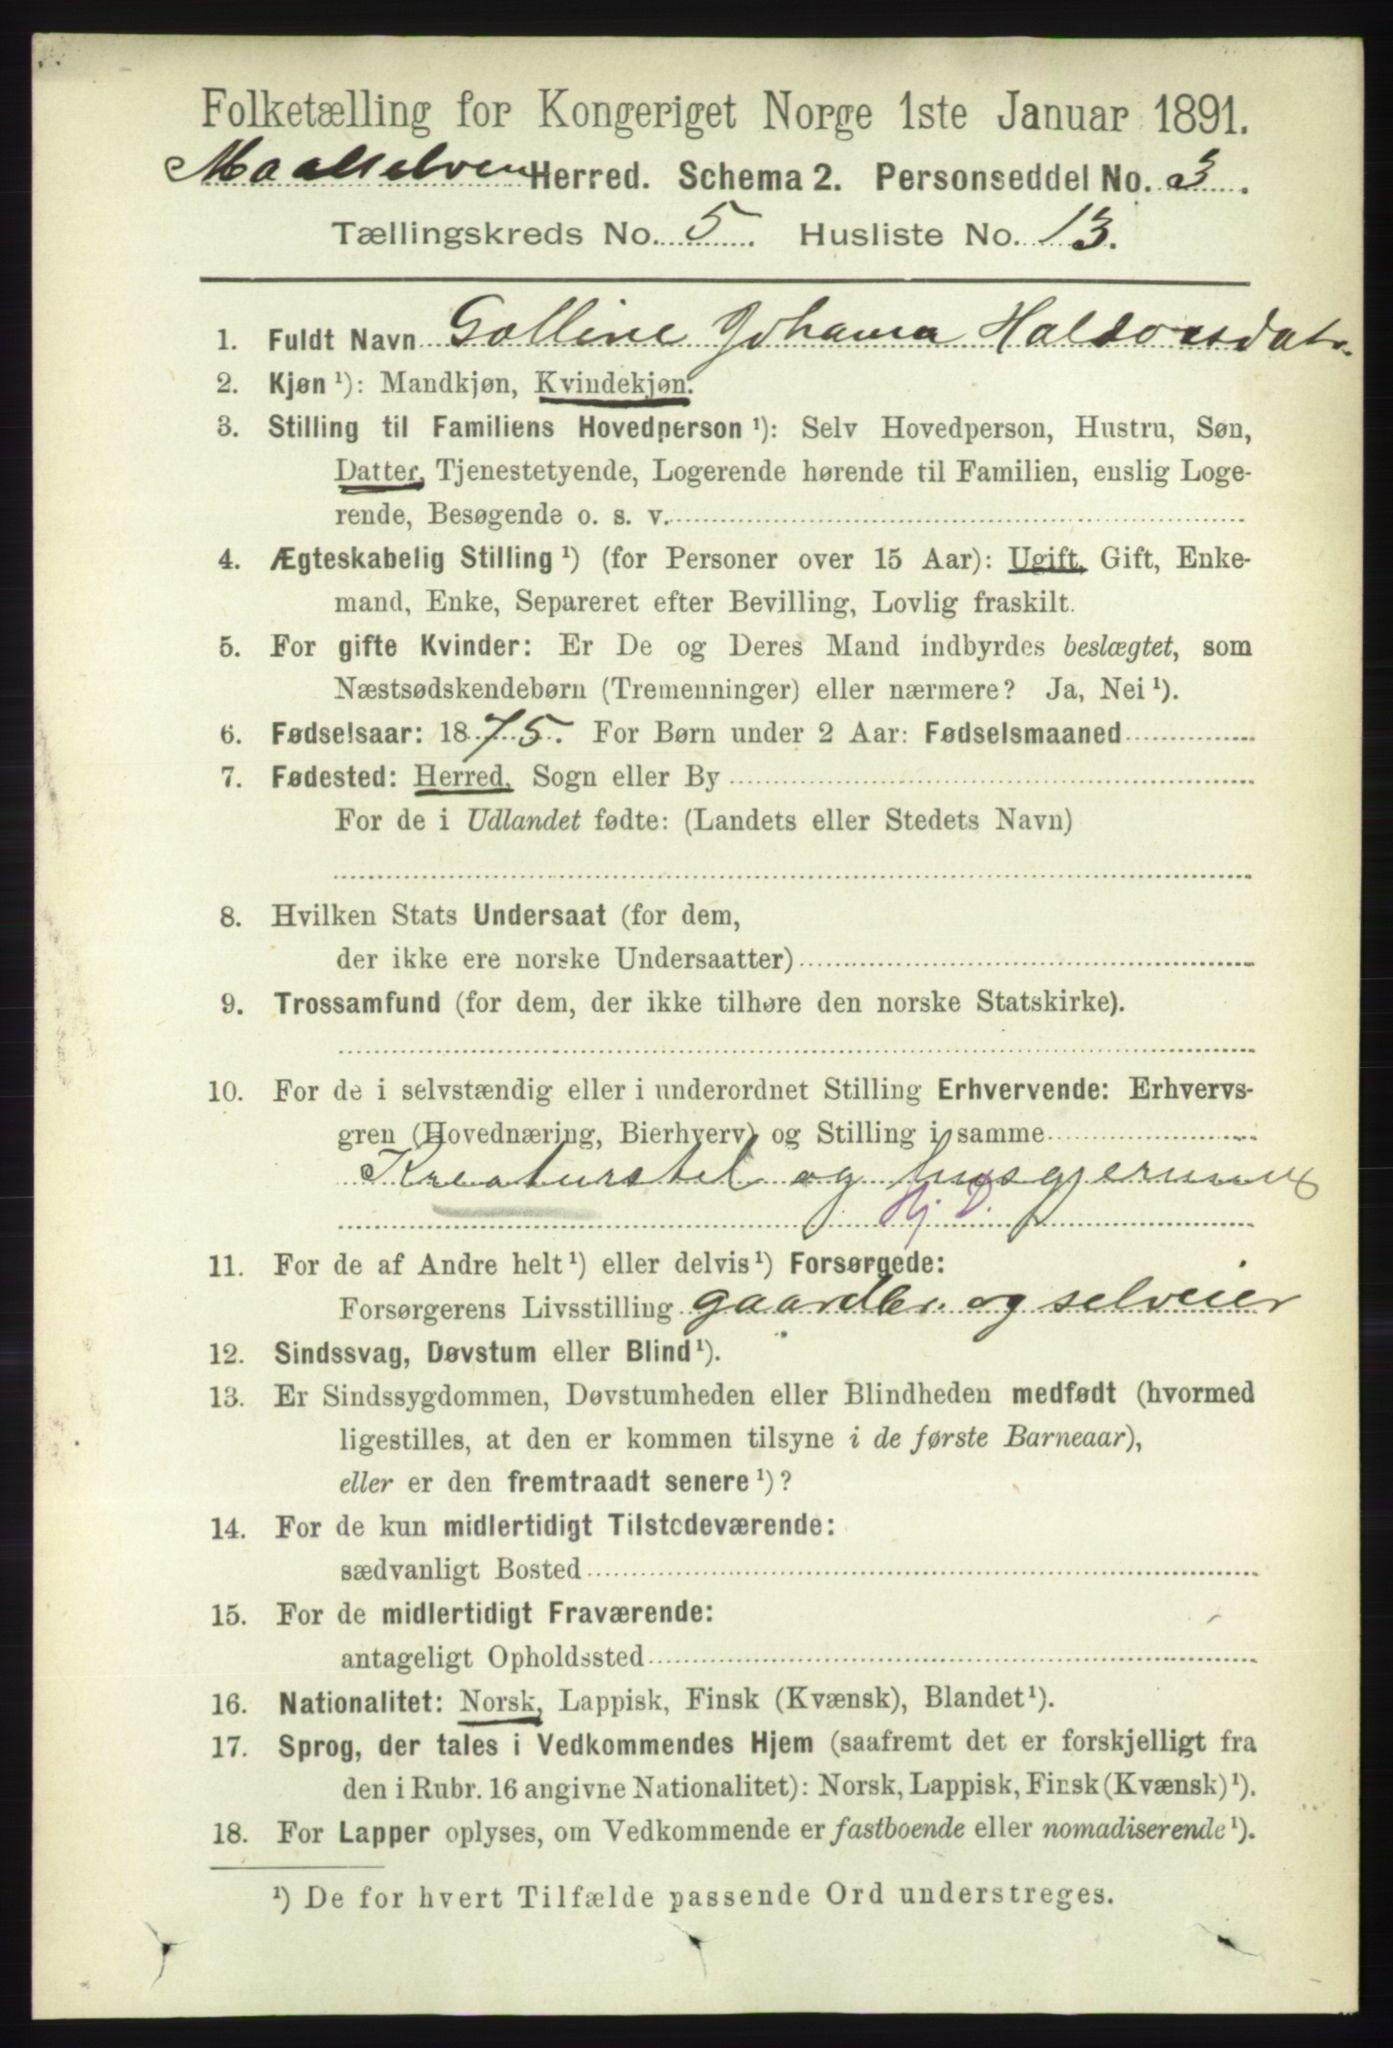 Folketælling for Kongeriget Norge 1ste Januar 1891.
Maalselven Herred. Schema 2. Personseddel No. 3.
Tællingskreds No. 5. Husliste No. 13.
1. Fuldt Navn Golline Johanna Haldorsdatr.
2. Kjøn ¹): Mandkjøn, Kvindekjøn.
3. Stilling til Familiens Hovedperson ¹): Selv Hovedperson, Hustru, Søn,
Datter, Tjenestetyende, Logerende hørende til Familien, enslig Loge-
rende, Besøgende o. s. v.
4. Ægteskabelig Stilling ¹) (for Personer over 15 Aar): Ugift, Gift, Enke-
mand, Enke, Separeret efter Bevilling, Lovlig fraskilt.
5. For gifte Kvinder: Er De og Deres Mand indbyrdes beslægtet, som
Næstsødskendebørn (Tremenninger) eller nærmere? Ja, Nei ¹).
6. Fødselsaar: 1875. For Børn under 2 Aar: Fødselsmaaned
7. Fødested: Herred, Sogn eller By
For de i Udlandet fødte: (Landets eller Stedets Navn)
8. Hvilken Stats Undersaat (for dem,
der ikke ere norske Undersaatter)
9. Trossamfund (for dem, der ikke tilhøre den norske Statskirke).
10. For de i selvstændig eller i underordnet Stilling Erhvervende: Erhvervs-
gren (Hovednæring, Bierhverv) og Stilling i samme
Kreaturstel og husgjerning
Hj. D.
11. For de af Andre helt ¹) eller delvis ¹) Forsørgede:
Forsørgerens Livsstilling gaardbr. og selveier
12. Sindssvag, Døvstum eller Blind ¹).
13. Er Sindssygdommen, Døvstumheden eller Blindheden medfødt (hvormed
ligestilles, at den er kommen tilsyne i de første Barneaar),
eller er den fremtraadt senere ¹)?
14. For de kun midlertidigt Tilstedeværende:
sædvanligt Bosted
15. For de midlertidigt Fraværende:
antageligt Opholdssted
16. Nationalitet: Norsk, Lappisk, Finsk (Kvænsk), Blandet ¹).
17. Sprog, der tales i Vedkommendes Hjem (saafremt det er forskjelligt fra
den i Rubr. 16 angivne Nationalitet): Norsk, Lappisk, Finsk (Kvænsk) ¹).
18. For Lapper oplyses, om Vedkommende er fastboende eller nomadiserende ¹).
¹) De for hvert Tilfælde passende Ord understreges.